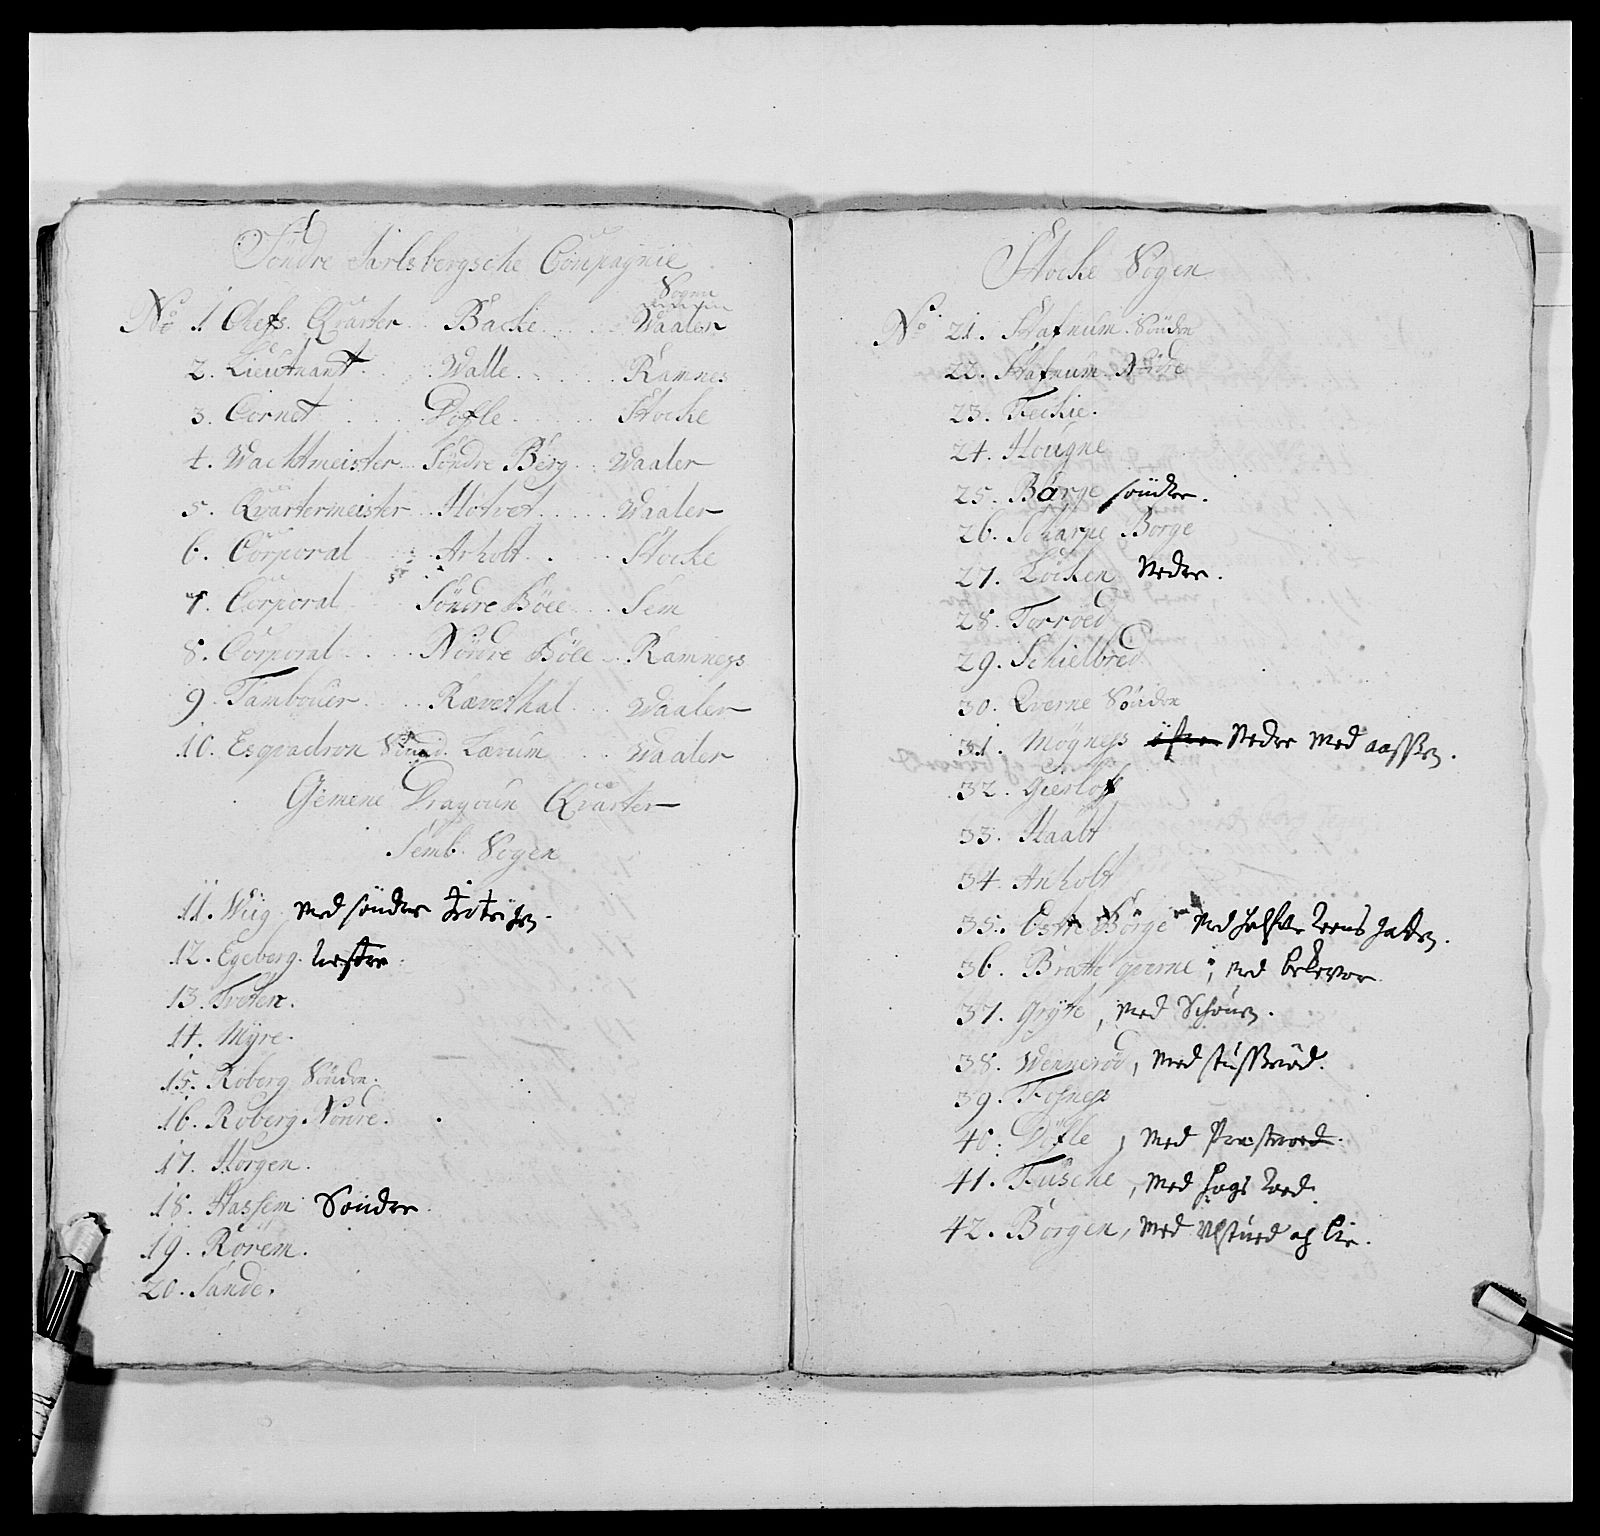 Söndre Jarlsbergsche Compagnie
Sogen
No 1 Chefs Qvarter Backe Waaler
2. Lieutnant Walle Ramnes
3. Cornet Stocke
4. Wachtmeister Söndre Berg Waaler
5. Qvartermeister Hotvet Waaler
6. Corporal Arholt Stocke
7. Corporal Söndre Böee Sem
8. Corporal Nordre Böee Ramness
9. Tambouer Rævethal Waaler
10. Esqvadron Larum Waaler
Gemene Dragoun Qvarter
Semb Sogen
11. Wiig med sönder
12. Egeberg Westre
13. Treten.
14. Myre.
15. Roberg Söndre.
16. Roberg Nordre.
17. Horgen.
18. Hassem Söndre
19. Rorem.
20. Sande.
Stocke Sogen
No 21. Stafnum Söndre
22. Stafnum Nörde
23. Feckie.
24. Hougne
25. Borge söndre.
26. Scharpe Borge
27. Löcken Nedre.
28. Torroed
29. Schielbred
30. Qverne Söndre
31. Mögness Nedre med
32. Gierlof
33. Haalt
34. Anholt
35. Borge med
36. Bratte qverne, med
37. Gryte, med
38. Wennerod, med
39. Fosness
40. med
41. Fusche, med
42. Borgen, med og Lie.